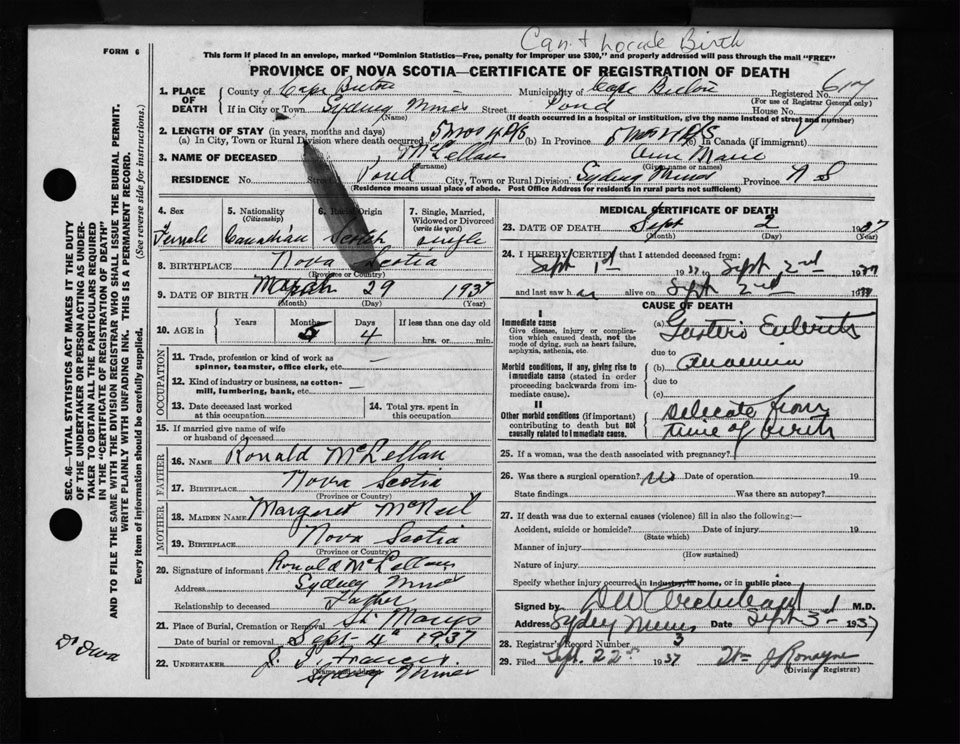 Can't Locate Birth
FORM 6
This form if placed in an envelope, marked "Dominion Statistics—Free, penalty for improper use $300," and properly addressed will pass through the mail "FREE"
PROVINCE OF NOVA SCOTIA—CERTIFICATE OF REGISTRATION OF DEATH
1. PLACE OF DEATH County of Cape Breton Municipality of Cape Breton Registered No.
(For use of Registrar General only)
If in City or Town Sydney Mines Street Pond House No.
(Name) (If death occurred in a hospital or institution, give the name instead of street and number)
2. LENGTH OF STAY (in years, months and days)
(a) In City, Town or Rural Division where death occurred 5 mos (b) In Province 5 mos (c) In Canada (if immigrant)
3. NAME OF DECEASED McLellan Ann Marie
(Surname) (Given name or names)
RESIDENCE No. Street Pond City, Town or Rural Division Sydney Mines Province N S
(Residence means usual place of abode. Post Office Address for residents in rural parts not sufficient)
4. Sex Female
5. Nationality (Citizenship) Canadian
6. Racial Origin Scotch
7. Single, Married, Widowed or Divorced (write the word) single
8. BIRTHPLACE Nova Scotia
(Province or Country)
9. DATE OF BIRTH March 29 1937
(Month) (Day) (Year)
10. AGE in Years Months 5 Days 4 If less than one day old hrs. or min.
OCCUPATION
11. Trade, profession or kind of work as spinner, teamster, office clerk, etc. —
12. Kind of industry or business, as cotton-mill, lumbering, bank, etc. —
13. Date deceased last worked at this occupation
14. Total yrs. spent in this occupation
15. If married give name of wife or husband of deceased
FATHER
16. NAME Ronald McLellan
17. BIRTHPLACE Nova Scotia
(Province or Country)
MOTHER
18. MAIDEN NAME Margaret McNeil
19. BIRTHPLACE Nova Scotia
(Province or Country)
20. Signature of informant Ronald McLellan
Address Sydney Mines
Relationship to deceased Father
21. Place of Burial, Cremation or Removal St Marys
Date of burial or removal Sept 4 1937
22. UNDERTAKER J. J. Francis
Sydney Mines
MEDICAL CERTIFICATE OF DEATH
23. DATE OF DEATH Sept 2 1937
(Month) (Day) (Year)
24. I HEREBY CERTIFY that I attended deceased from:
Sept 1st 1937 Sept 2nd 1937
and last saw h er alive on Sept 2nd 1937
CAUSE OF DEATH
I
Immediate cause
Give disease, injury or complication which caused death, not the mode of dying, such as heart failure, asphyxia, asthenia, etc.
(a) Gastero
due to
Morbid conditions, if any, giving rise to immediate cause (stated in order proceeding backwards from immediate cause).
(b)
due to
(c)
II
Other morbid conditions (if important) contributing to death but not causally related to immediate cause.
Delicate from
time of birth
25. If a woman, was the death associated with pregnancy?
26. Was there a surgical operation? no Date of operation 19
State findings Was there an autopsy?
27. If death was due to external causes (violence) fill in also the following:—
Accident, suicide or homicide? Date of injury 19
(State which)
Manner of injury
(How sustained)
Nature of injury
Specify whether injury occurred in industry, in home, or in public place
Signed by D W Archibald M.D.
Address Sydney Mines Date Sept 3rd 1937
28. Registrar's Record Number 3
29. Filed Sept. 22 1937 Wm J Ronayne
(Division Registrar)
SEC. 46—VITAL STATISTICS ACT MAKES IT THE DUTY
OF THE UNDERTAKER OR PERSON ACTING AS UNDER-
TAKER TO OBTAIN ALL THE PARTICULARS REQUIRED
IN THE "CERTIFICATE OF REGISTRATION OF DEATH"
AND TO FILE THE SAME WITH THE DIVISION REGISTRAR WHO SHALL ISSUE THE BURIAL PERMIT.
WRITE PLAINLY WITH UNFADING INK. THIS IS A PERMANENT RECORD.
Every item of information should be carefully supplied. (See reverse side for instructions.)